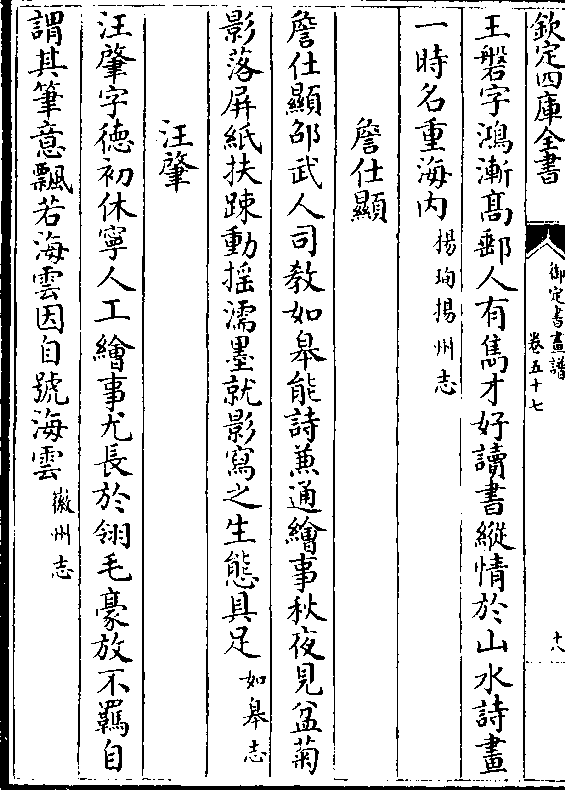 欽定四庫全書
御定書畫譜
卷五十七
十八
王磐字鴻漸高郵人有雋才好讀書縱情於山水詩畫
一時名重海内揚珣揚州志
詹仕顯
詹仕顯邵武人司教如皋能詩兼通繪事秋夜見盆菊
影落屏紙扶踈動揺濡墨就影寫之生態具足如皋志
汪肇
汪肇字德初休寧人工繪事尤長於翎毛豪放不羈自
謂其筆意飄若海雲因自號海雲徽州志